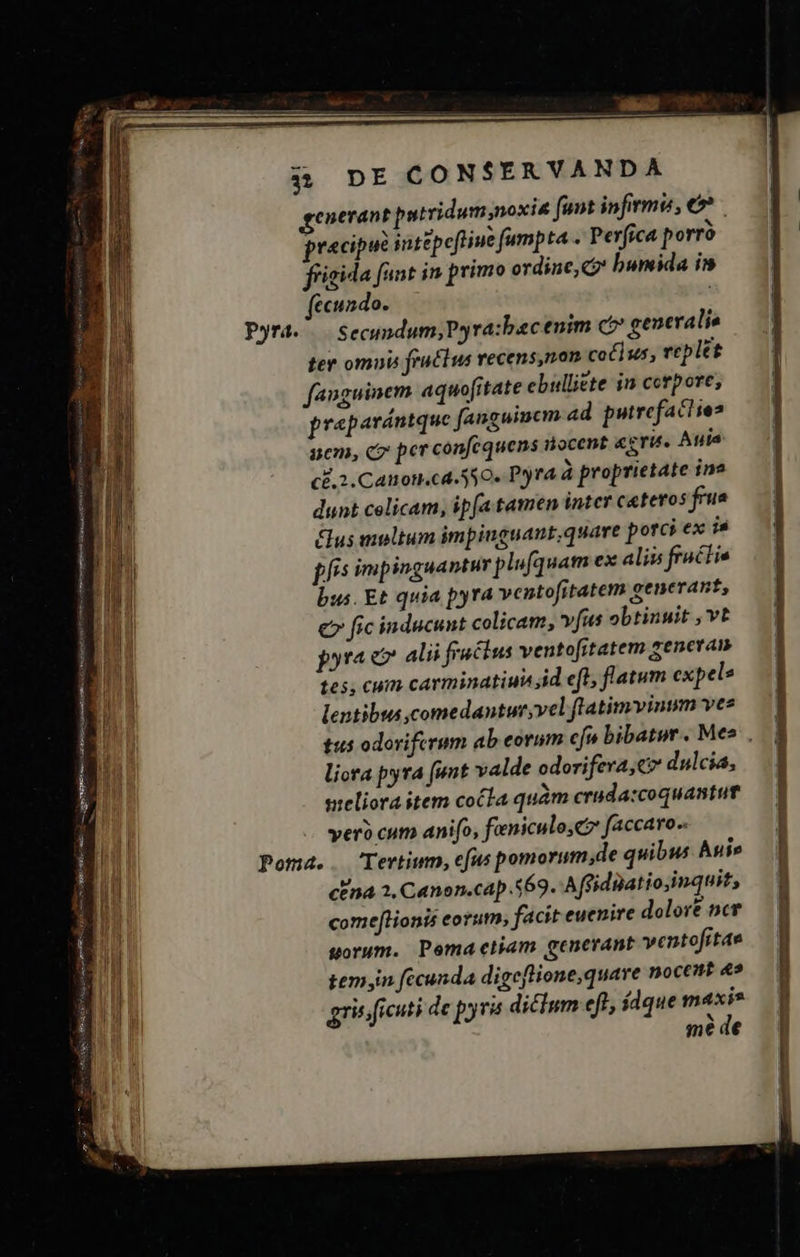 32 DE CONSERVANDA
generant putridum,noxia sunt infirmis, &
præcipuè intẽpestiuè sumpta. Persica porrò
frigida sunt in primo ordine,& humida in
secundo.
Pyra. Secundum,Pyra:hæc enim & generali-
ter omnis fructus recens,non coctus, replẽt
sanguinem aquositate ebulliẽte in corpore,
præparántque sanguinem ad putrefactio-
nem, & per consequens nocent ægris. Aui-
cẽ.2.Canon.ca.550. Pyra à proprietate in-
dunt colicam, ipsa tamen inter cæteros fru-
ctus multum impinguant,quare porci ex i-
psis impinguantur plusquam ex aliis fructi-
bus. Et quia pyra ventositatem generant,
& sic inducunt colicam, vsus obtinuit , vt
pyra & alii fructus ventositatem generan-
tes, cum carminatiuis,id est, flatum expel-
lentibus,comedantur,vel statim vinum ve-
tus odoriferum ab eorum esu bibatur. Me-
liora pyra sunt valde odorifera,& dulcia,
meliora item cocta quàm cruda:coquantur
verò cum aniso, fœniculo,& saccaro.
Poma. Tertium, esus pomorum,de quibus Aui-
cẽna 2. Canon.cap.569. Assiduatio,inquit,
comestionis eorum, facit euenire dolorẽ ner
uorum. Poma etiam generant ventosita-
tem,in secunda digestione,quare nocent æ-
gris,sicuti de pyris dictum est, ídque maxi-
mè de